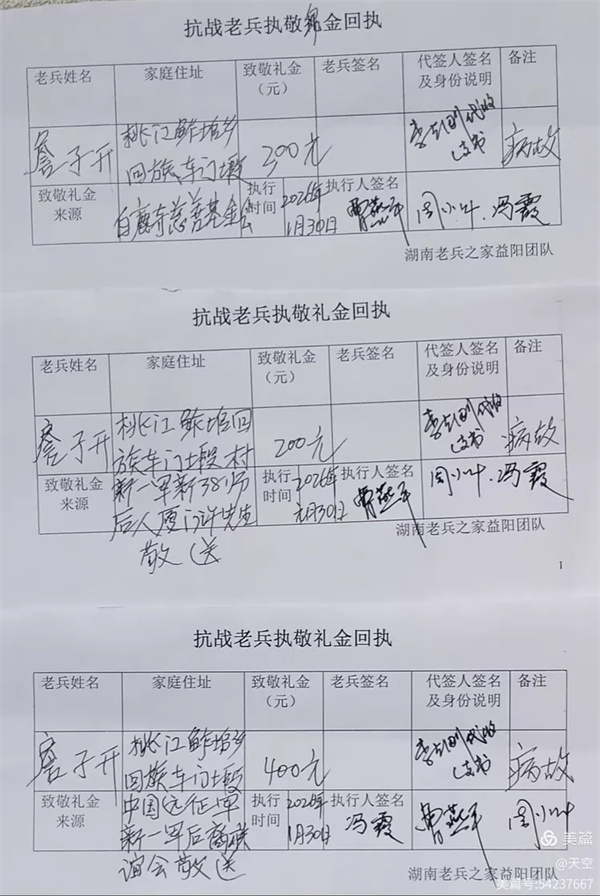 抗战老兵执敬礼金回执
老兵姓名 家庭住址 致敬礼金（元） 老兵签名 代签人签名及身份说明 备注
詹子开 桃江鲊埠乡回族车门塅 300元 代收 支书 病故
致敬礼金来源 慈善基金会 执行时间 2026年1月30日 执行人签名 曹燕平 周小叶.冯霞
湖南老兵之家益阳团队
抗战老兵执敬礼金回执
老兵姓名 家庭住址 致敬礼金（元） 老兵签名 代签人签名及身份说明 备注
詹子开 桃江鲊埠回族车门塅村 200元 代收 支书 病故
致敬礼金来源 新一军新38师后人厦门许先生敬送 执行时间 2026年元月30日 执行人签名 曹燕平 周小叶.冯霞
湖南老兵之家益阳团队
1
抗战老兵执敬礼金回执
老兵姓名 家庭住址 致敬礼金（元） 老兵签名 代签人签名及身份说明 备注
詹子开 桃江鲊埠乡回族车门塅 400元 代收 支书 病故
致敬礼金来源 中国远征军新一军后裔联谊会敬送 执行时间 2026年1月30日 执行人签名 冯霞 曹燕平 周小叶
湖南老兵之家益阳团队
美篇
@天空
美篇号:54237667